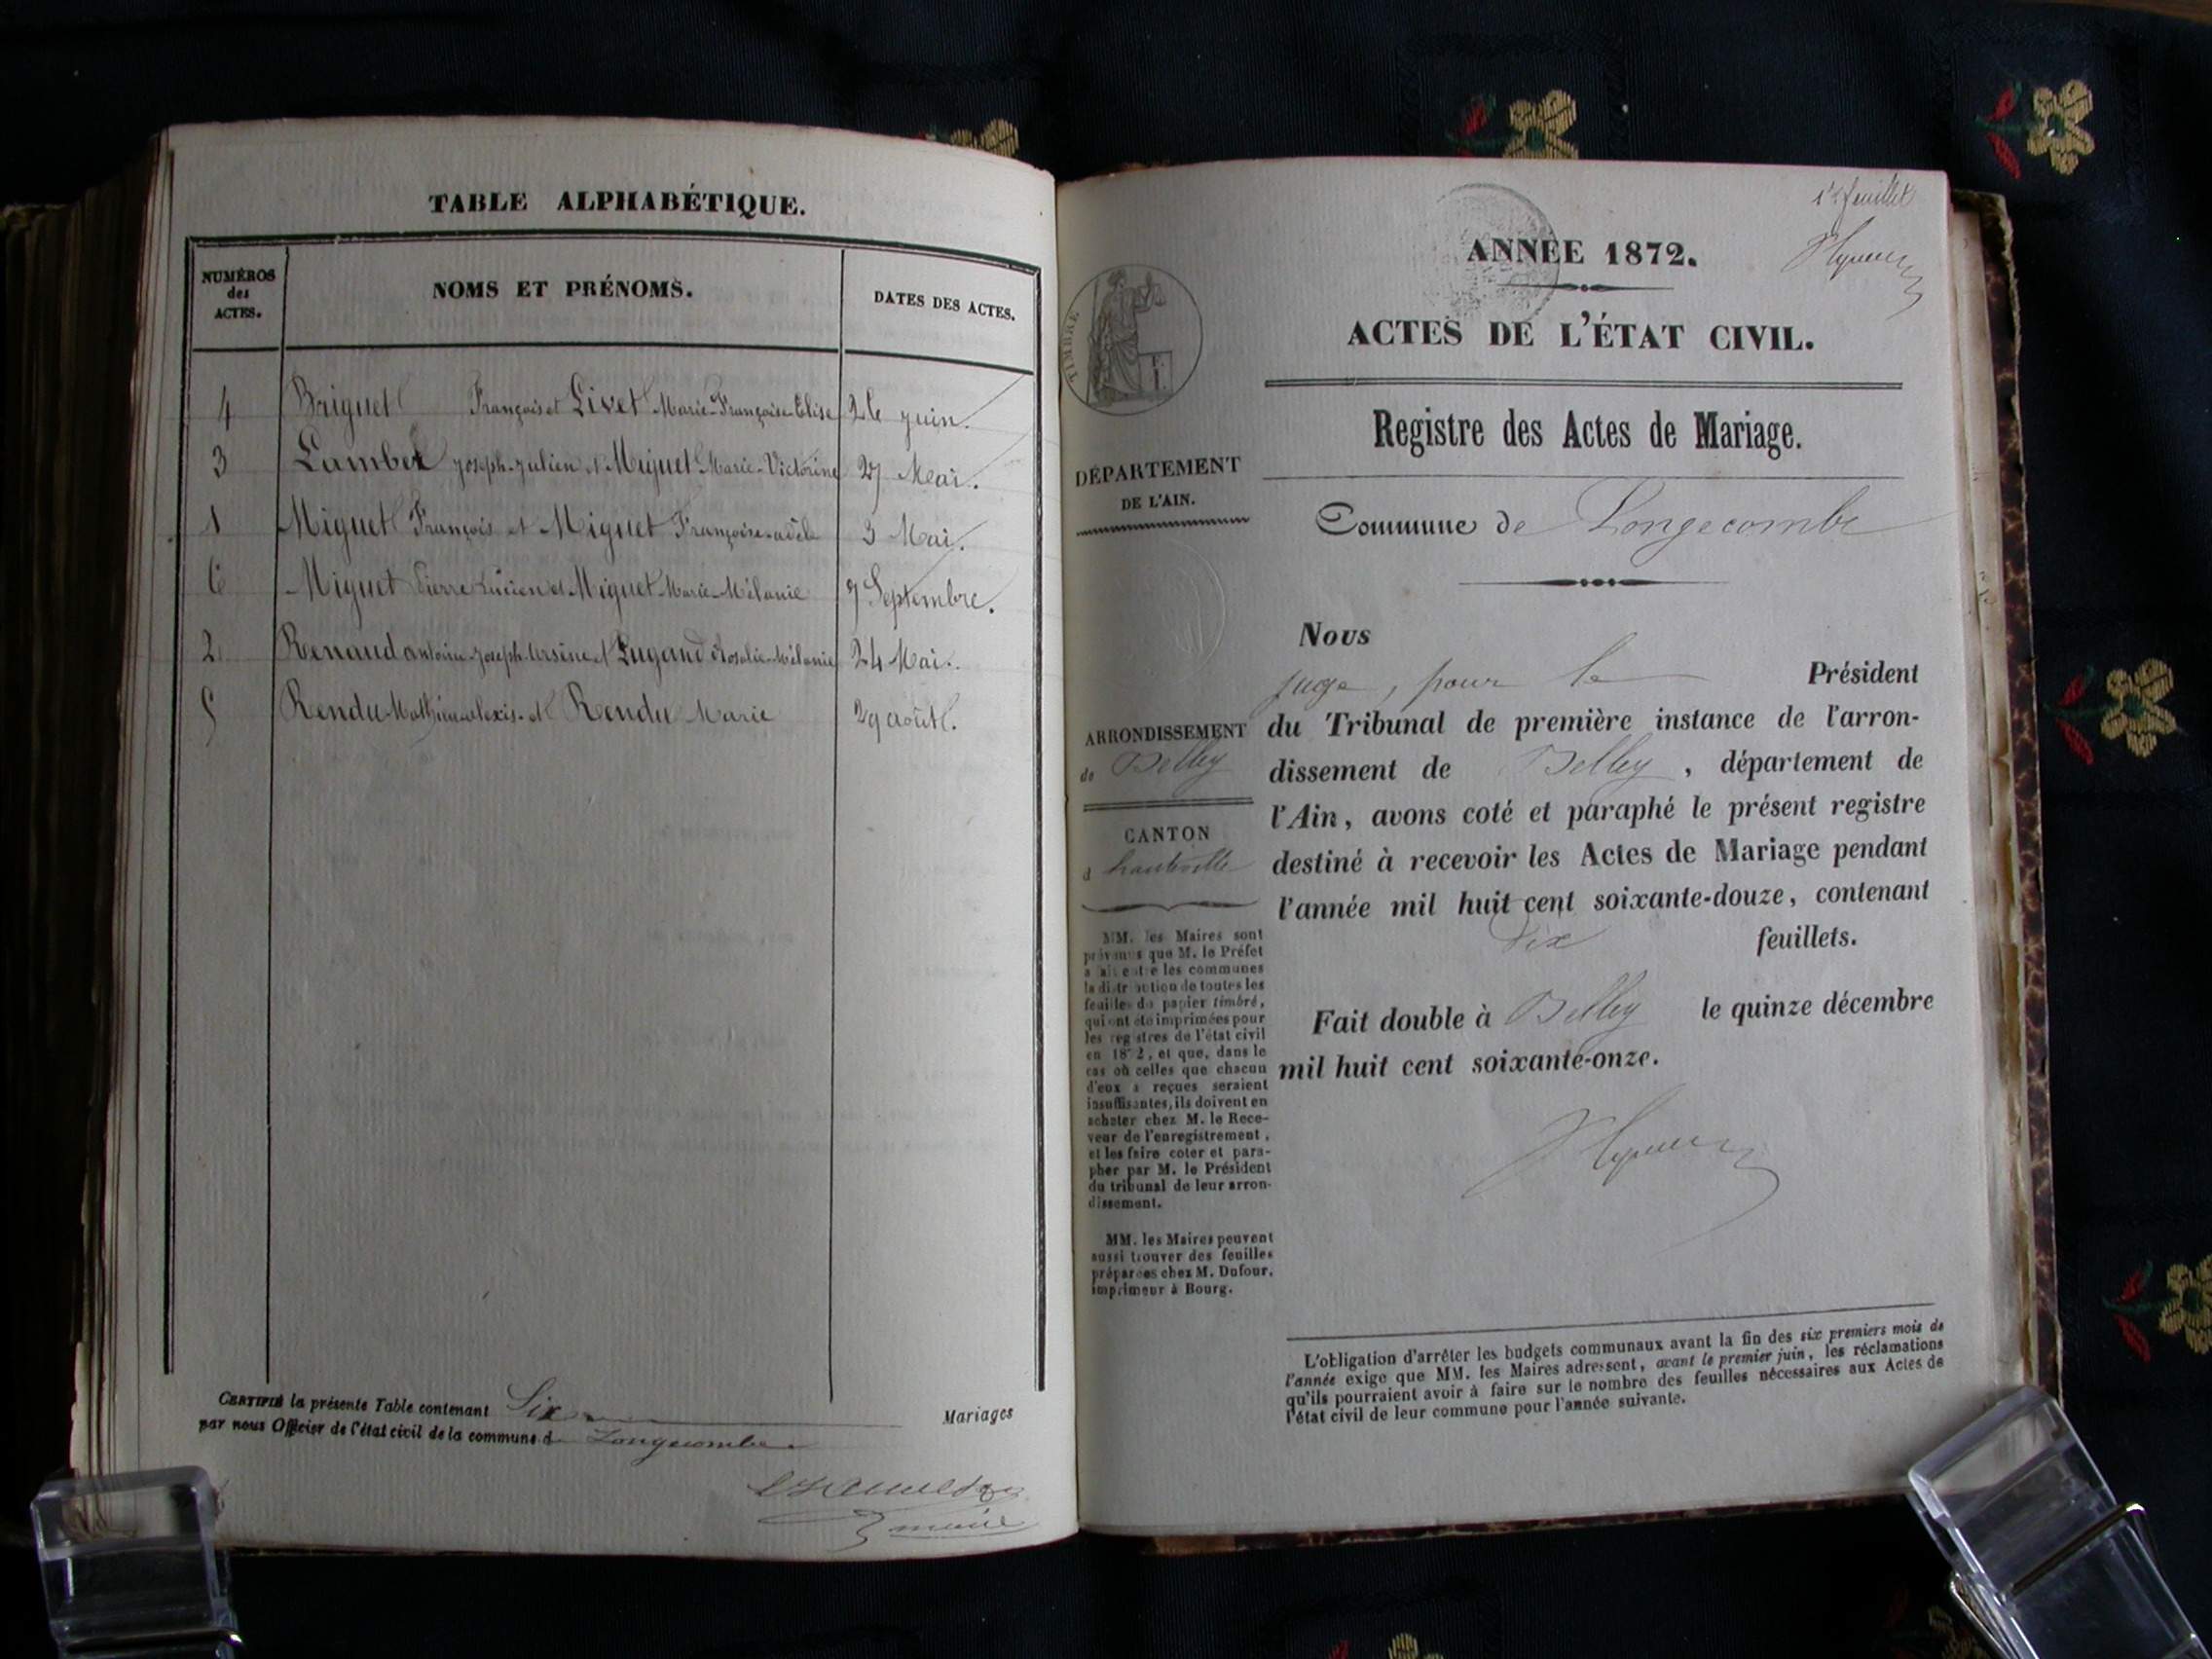 TABLE ALPHABÉTIQUE.
NUMÉROS
des
ACTES.
NOMS ET PRÉNOMS.
DATES DES ACTES.
4 Briguet François et Livet Marie-Françoise-Elise 26 juin.
3 Lambert Joseph-Julien et Miguet Marie-Victorine 27 Mai.
1 Miguet François et Miguet Françoise-adèle 3 Mai.
6 Miguet Pierre Lucien et Miguet Marie-Mélanie 7 Septembre.
2 Renaud antoine-Joseph-Arsène et Lugand Rosalie-Mélanie 24 Mai.
5 Rendu Mathieu-alexis et Rendu Marie 29 août.
CERTIFIÉ la présente Table contenant Six Mariages
par nous Officier de l'état civil de la commune d Longecombe
maire
1er feuillet
ANNÉE 1872.
ACTES DE L'ÉTAT CIVIL.
TIMBRE
Registre des Actes de Mariage.
DÉPARTEMENT
DE L'AIN.
Commune de Longecombe
Nous
juge, pour le Président
du Tribunal de première instance de l'arron-
dissement de Belley, département de
l'Ain, avons coté et paraphé le présent registre
destiné à recevoir les Actes de Mariage pendant
l'année mil huit cent soixante-douze, contenant
Dix feuillets.
Fait double à Belley le quinze décembre
mil huit cent soixante-onze.
ARRONDISSEMENT
de Belley
CANTON
d hauteville
MM. les Maires sont
prévenus que M. le Préfet
a fait entre les communes
la distribution de toutes les
feuilles de papier timbré,
qui ont été imprimées pour
les registres de l'état civil
en 1872, et que, dans le
cas où celles que chacun
d'eux a reçues seraient
insuffisantes, ils doivent en
acheter chez M. le Rece-
veur de l'enregistrement,
et les faire coter et para-
pher par M. le Président
du tribunal de leur arron-
dissement.
MM. les Maires peuvent
aussi trouver des feuilles
préparées chez M. Dufour,
imprimeur à Bourg.
L'obligation d'arrêter les budgets communaux avant la fin des six premiers mois de
l'année exige que MM. les Maires adressent, avant le premier juin, les réclamations
qu'ils pourraient avoir à faire sur le nombre des feuilles nécessaires aux Actes de
l'état civil de leur commune pour l'année suivante.